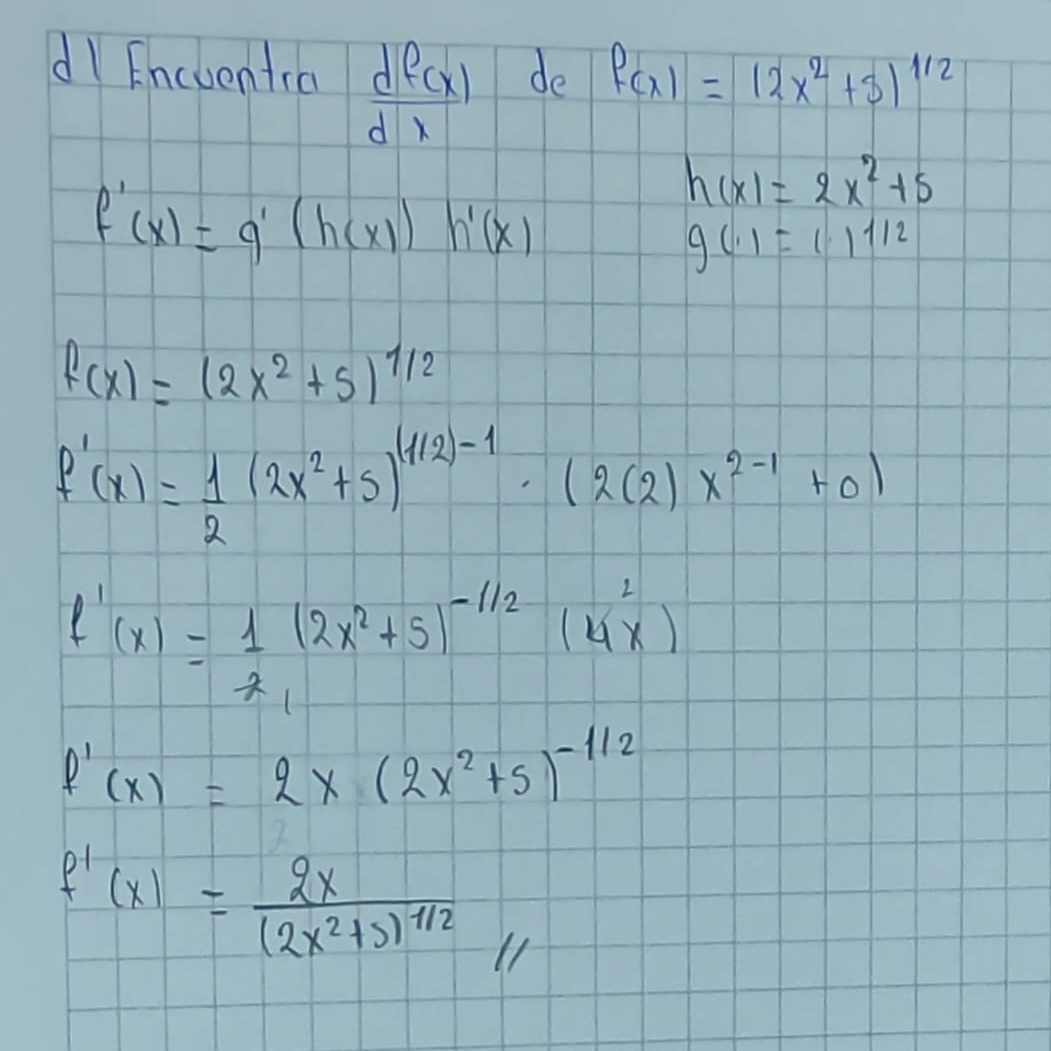 d) Encuentra df(x)/dx de f(x) = (2x² + 5)^1/2
h(x) = 2x² + 5
f'(x) = g' (h(x)) h'(x)
g(.) = (.)^1/2
f(x) = (2x² + 5)^1/2
f'(x) = 1/2 (2x² + 5)^(1/2)-1 · (2(2) x^2-1 + 0)
f'(x) = 1/2 (2x² + 5)^-1/2 (4x) 2 1
f'(x) = 2x (2x² + 5)^-1/2
f'(x) = 2x/(2x² + 5)^1/2 //